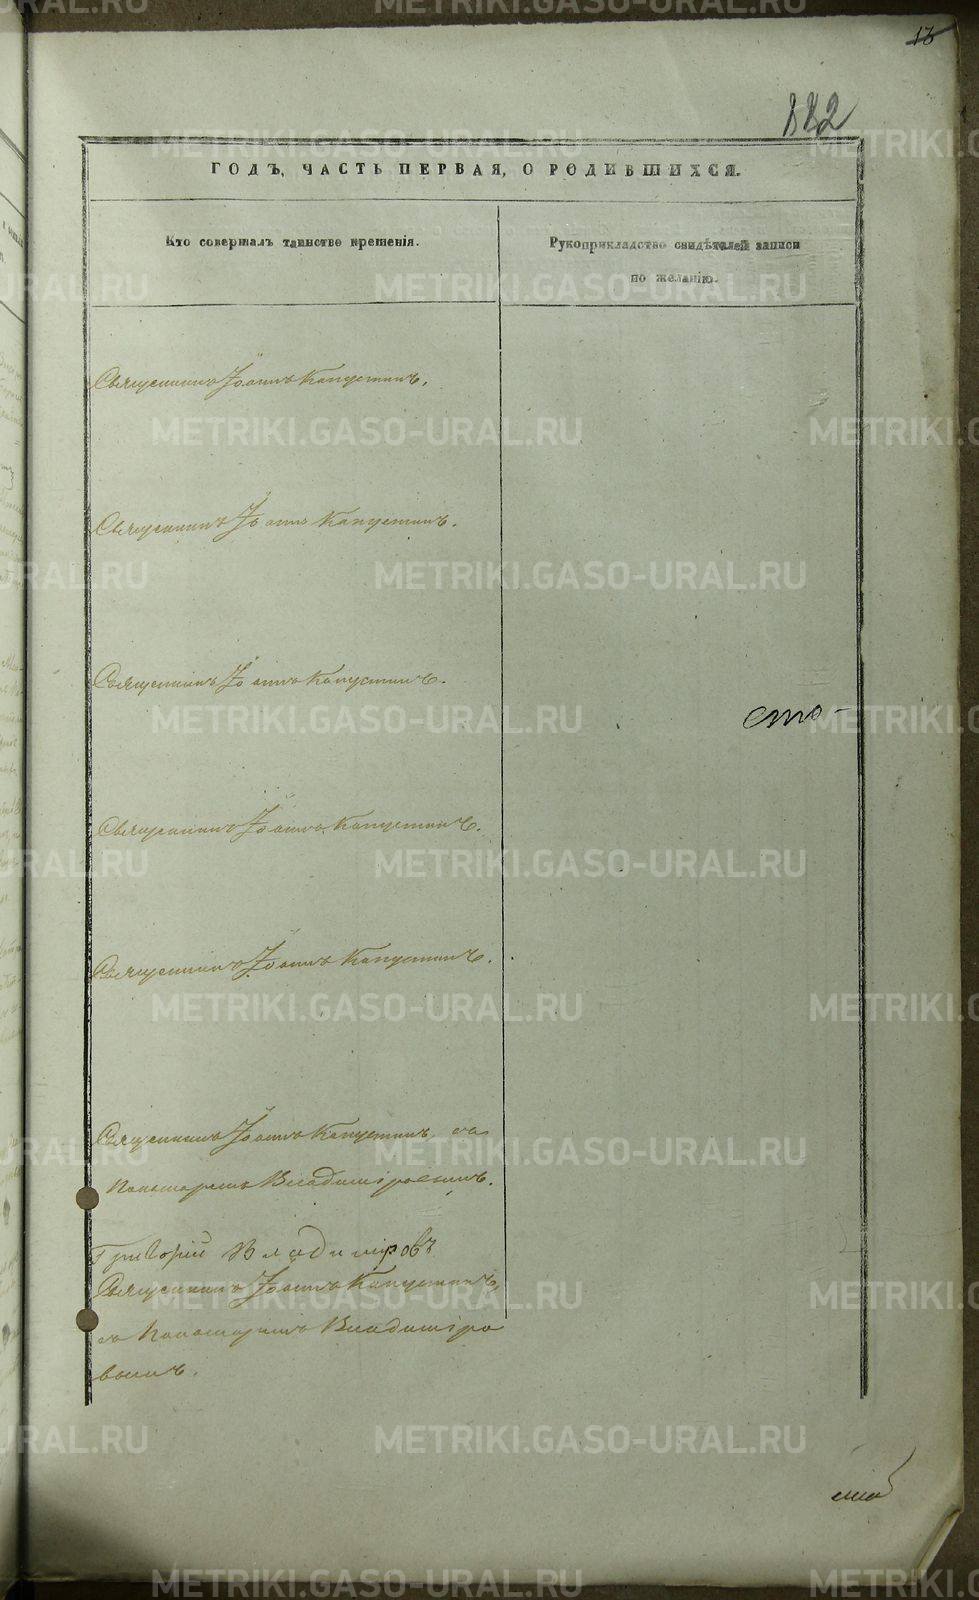 13
882
ГОДЪ, ЧАСТЬ ПЕРВАЯ, О РОДИВШИХСЯ.
Кто совершалъ таинство крещенія.
Рукоприкладство свидѣтелей записи
по желанію.
Священникъ Іоаннъ Капустинъ.
Священникъ Іоаннъ Капустинъ.
Священникъ Іоаннъ Капустинъ.
сто-
Священникъ Іоаннъ Капустинъ.
Священникъ Іоаннъ Капустинъ.
Священникъ Іоаннъ Капустинъ, съ
Пономаремъ Владиміровымъ.
Григорій Владиміровъ
Священникъ Іоаннъ Капустинъ,
съ Пономаремъ Владиміро
вымъ.
METRIKI.GASO-URAL.RU